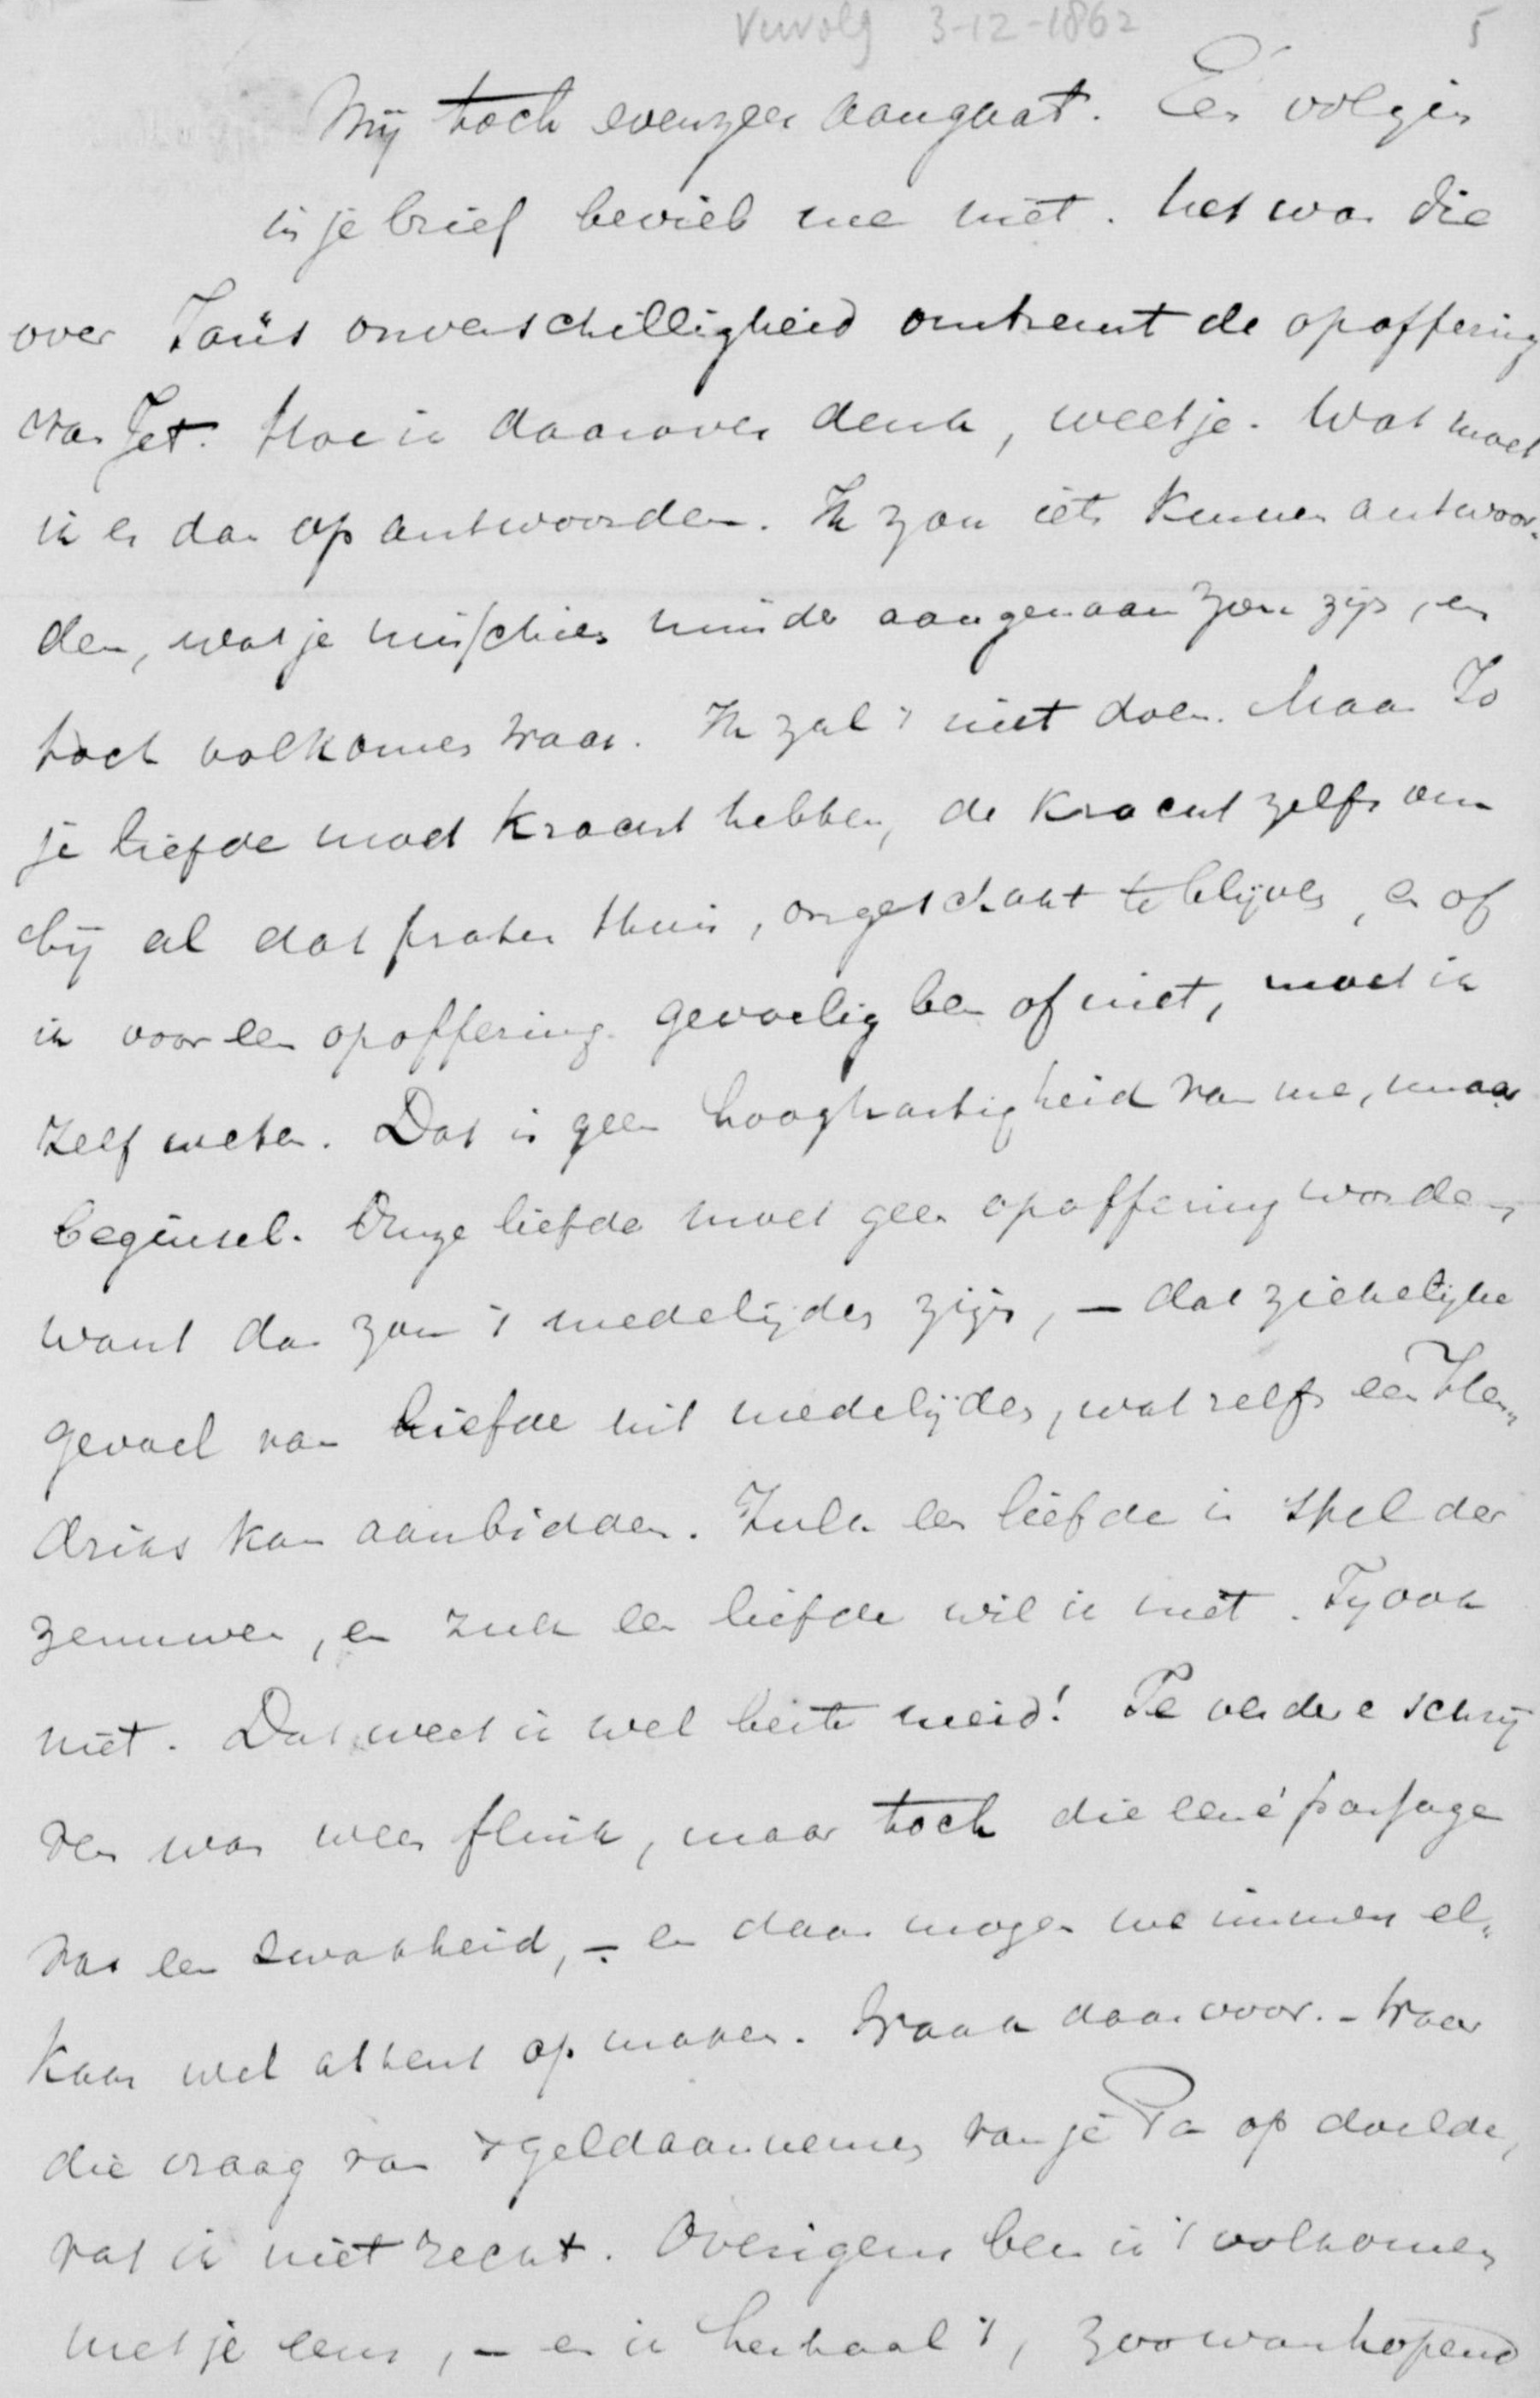 Vervolg 3-12-1862 5
mij toch evenzeer aangaat. Eén volzin
in je brief beviel me niet. het was die
over Jaűs onverschilligheid omtrent de opoffering
van Jet. Hoe ik daarover denk, weet je. Wat moet
ik er dan op antwoorden. Ik zou iets kunnen antwoor-
den, wat je misschien minder aangenaam zou zijn, en
toch volkomen waar. Ik zal 't niet doen. Maar Jo
je liefde moet kracht hebben, de kracht zelfs om
bij al dat praten thuis, ongeschokt te blijven, en of
ik voor een opoffering gevoelig ben of niet, moet ik
zelf weten. Dat is geen hooghartigheid van me, maar
beginsel. Onze liefde moet geen opoffering worden,
want dan zou 't medelijden zijn, – dat ziekelijke
gevoel van liefde uit medelijden, wat zelfs een Hen-
driks kan aanbidden. Zulk een liefde is spel der
zenuwen, en zulk een liefde wil ik niet. Jy ook
niet. Dat weet ik wel beste meid! Je verdere schrij
ven was weer flink, maar toch die eene passage
was een zwakheid, – en daar mogen we immers el-
kaar wel attent op maken. Waak daarvoor. – Waar
die vraag van 't geldaannemen van je Pa op doelde,
vat ik niet recht. Overigens ben ik 't volkomen
met je eens, – en ik herhaal 't, zoo wanhopend